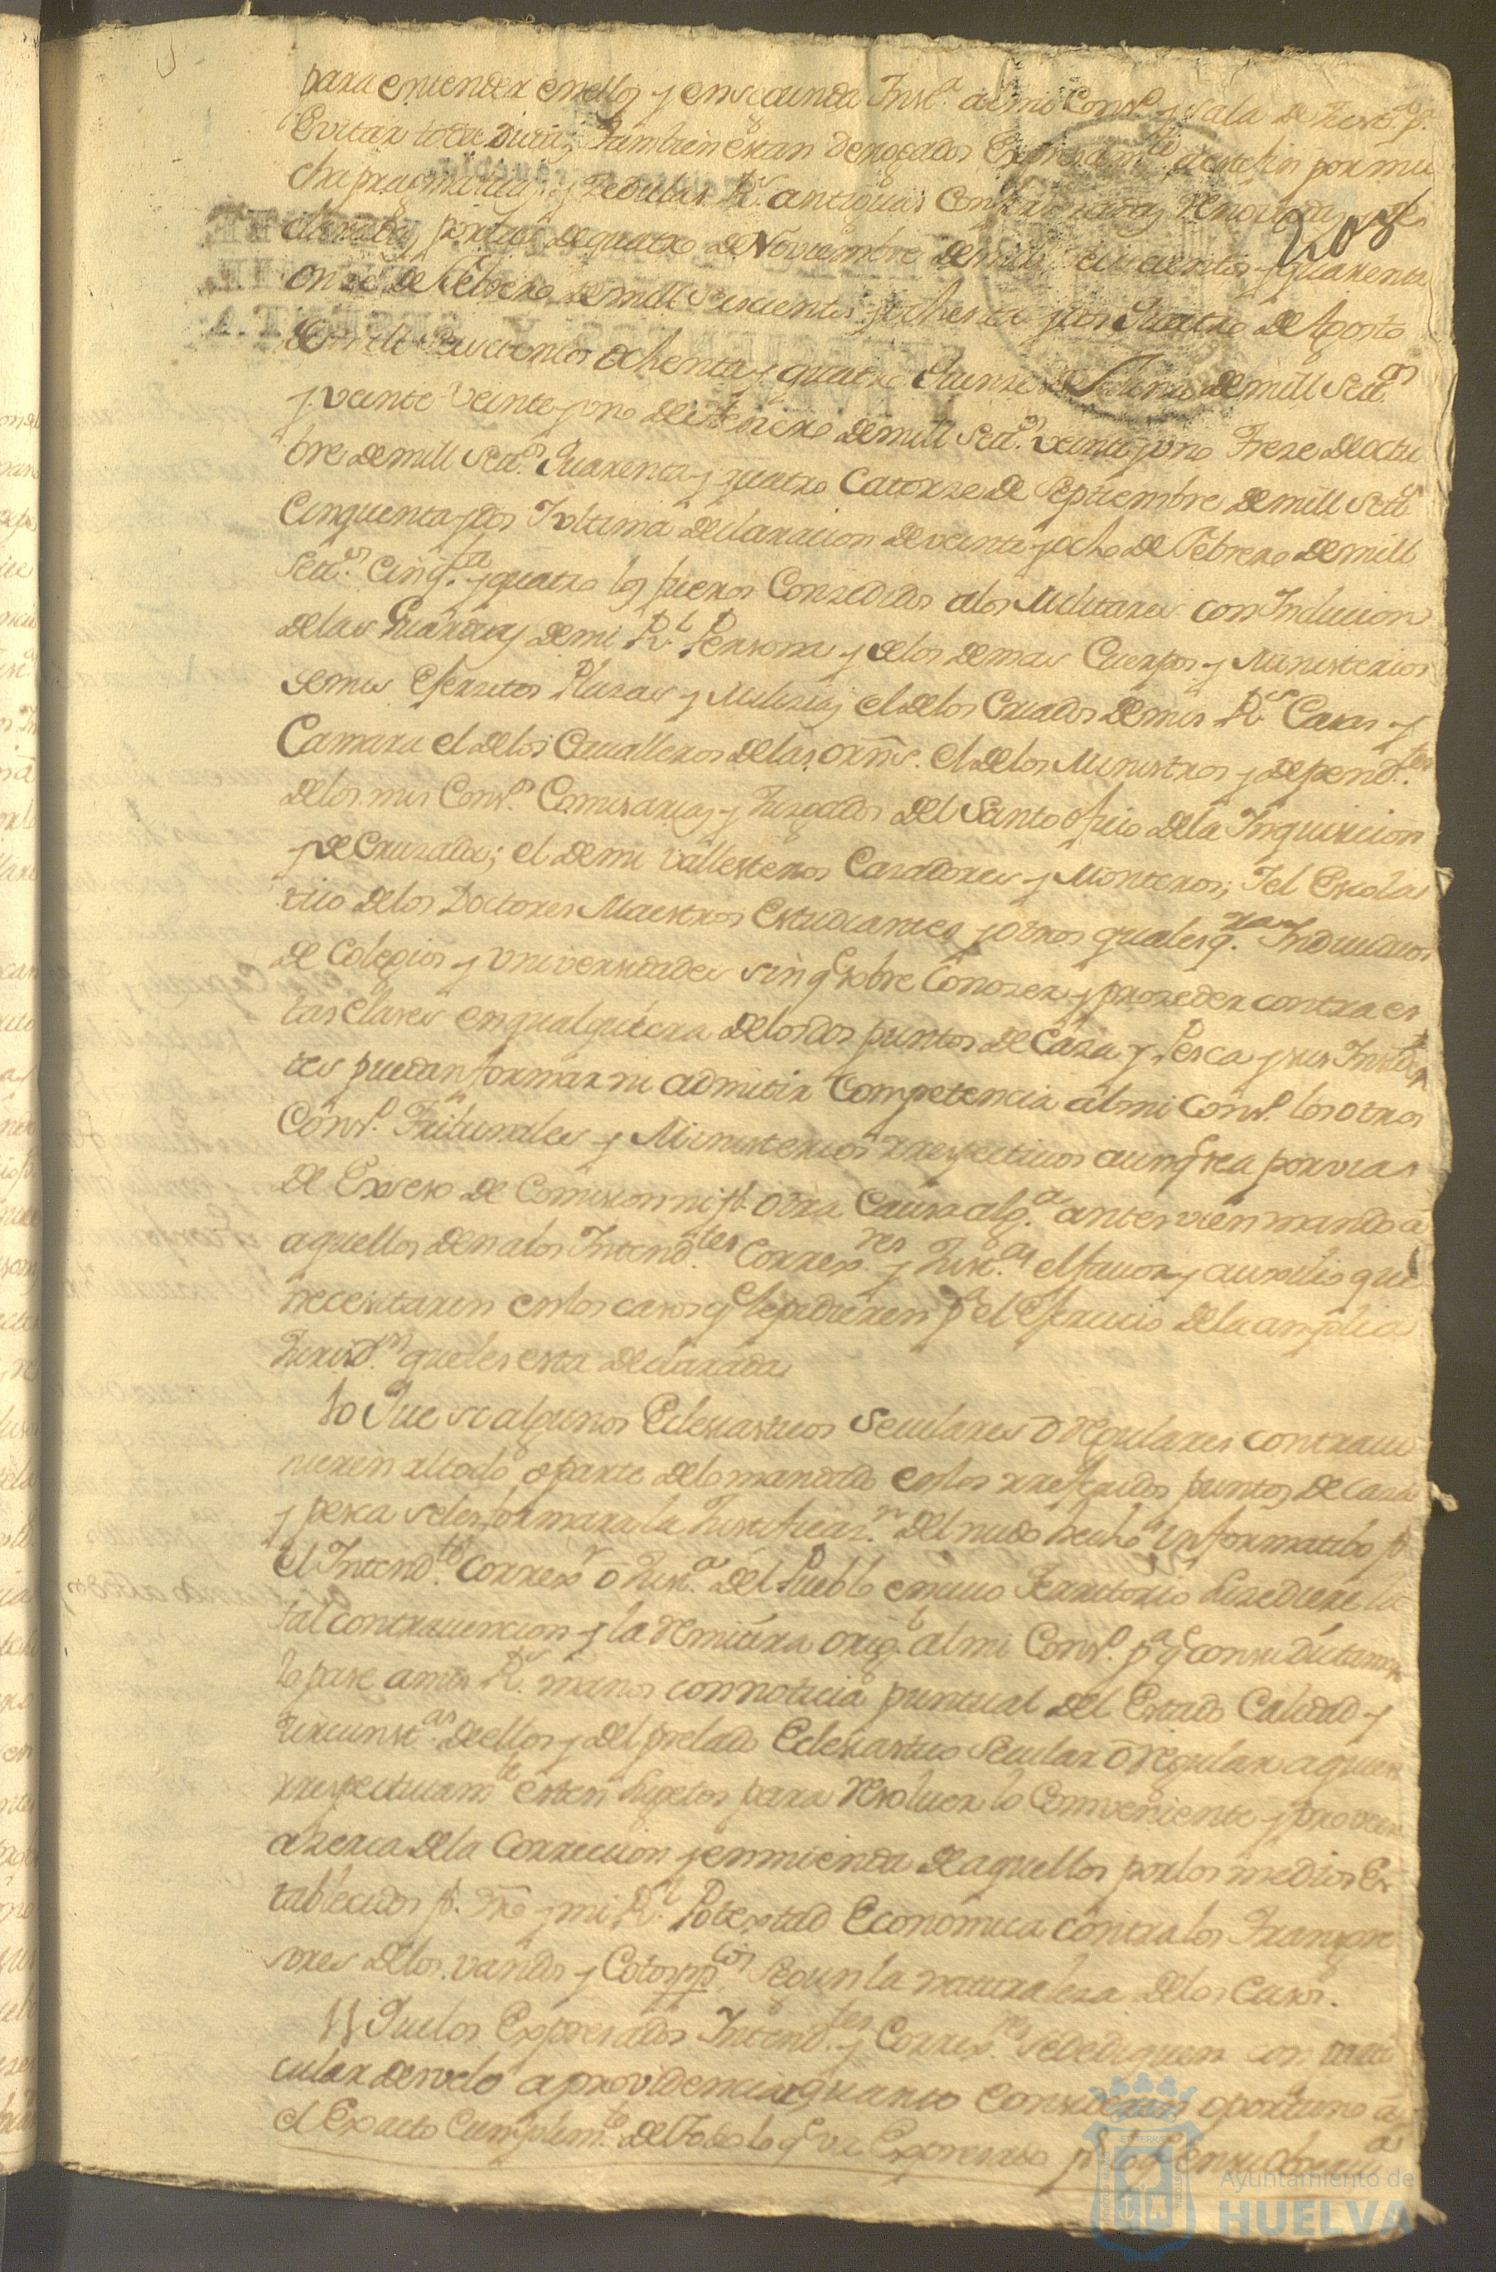 para entender en ellos y en segunda Inst.ª al mi Cons.º y Sala de Just.ª p.ª
Evitar toda Duda, tambien estan Derogados Expresam.te a este fin por mu
chas pragmaticas, y Zedulas R.s antiguas
208
declaradas por las de quatro de Noviembre de mill seiscientos y quarenta
onze de Febrero de mill seiscientos y ochenta y dos Quatro de Agosto
de mill seiscientos ochenta y quatro Quinze de Junio de mill Sett.os
y veinte Veinte y uno de Henero de mill Sett.os veinte y uno Treze de octu
bre de mill Sett.os Quarenta y quatro Catorze de Septiembre de mill Sett.os
Cinquenta y dos Y ultima declaracion de veinte y ocho de Febrero de mill
Sett.os Cinq.ta y quatro los fueros Conzedidos a los Militares con Inclucion
de las Guardias de mi R.l Persona y de los demas Cuerpos y Ministerios
de mis Exerzitos Plazas y Milizias el de los Criados de mis R.s Casas y
Camara el de los Cavalleros de las orns. el de los Ministros y depend.tes
de los mis Cons.os Comisarias y Juzgados del Santo oficio de la Inquisicion
y de Cruzada; el de mi Vallesteros Cazadores y Monteros; Y el Escolas
tico de los Doctores Maestros Estudiantes y otros qualesq.ra Individuos
de Colegios y Universidades sin q.e sobre Conozer y prozeder contra es
tas Clases en qualquiera de los dos puntos de Caza y Pesca y sus Inciden
tes puedan formar ni admitir Competencia al mi Cons.º los otros
Cons.os Tribunales y Ministerios rrespectivos aunq.e sea por via
de Exzeso de Comision ni p.r otra Causa alg.ª antes vien mando a
aquellos den a los Intend.tes Correx.res y Just.as el favor y auxilio que
necesitaren en los casos q.e le pidieren p.ª el Exercicio de la amplia
Jurisd.on que les esta declarada
10 Que si algunos Eclesiasticos Seculares o rregulares contravi
nieren al todo o parte de lo mandado en los rreferidos puntos de caza
y pesca se les formara la Justificaz.n del nudo hecho informatibo p.r
el Intend.te Correx.r o Just.ª del Pueblo en cuio Territorio suzediere la
tal contravencion y la remitira orig.l al mi Cons.º p.ª q.e con su Dictamen
lo pase a mis R.s manos con noticia puntual del Estado Calidad y
zircunst.as de ellos y del prelado Eclesiastico secular o regular a quien
rrespectivam.te esten sugetos para resolver lo Conveniente y proveer
azerca de la Correccion y enmienda de aquellos por los medios Es
tablecidos p.r Dro y mi R.l Potestad Economica contra los Transgre
sores de los vandos y Cotos pp.cos segun la naturaleza de los Casos.
11 Que los Expresados Intend.tes y Correx.res se dediquen con parti
cular desvelo a providenciar quanto Consideren oportuno a
el Exacto Cumplim.to de todo lo q.e va Expresado p.r lo q.e
Ayuntamiento de
HUELVA